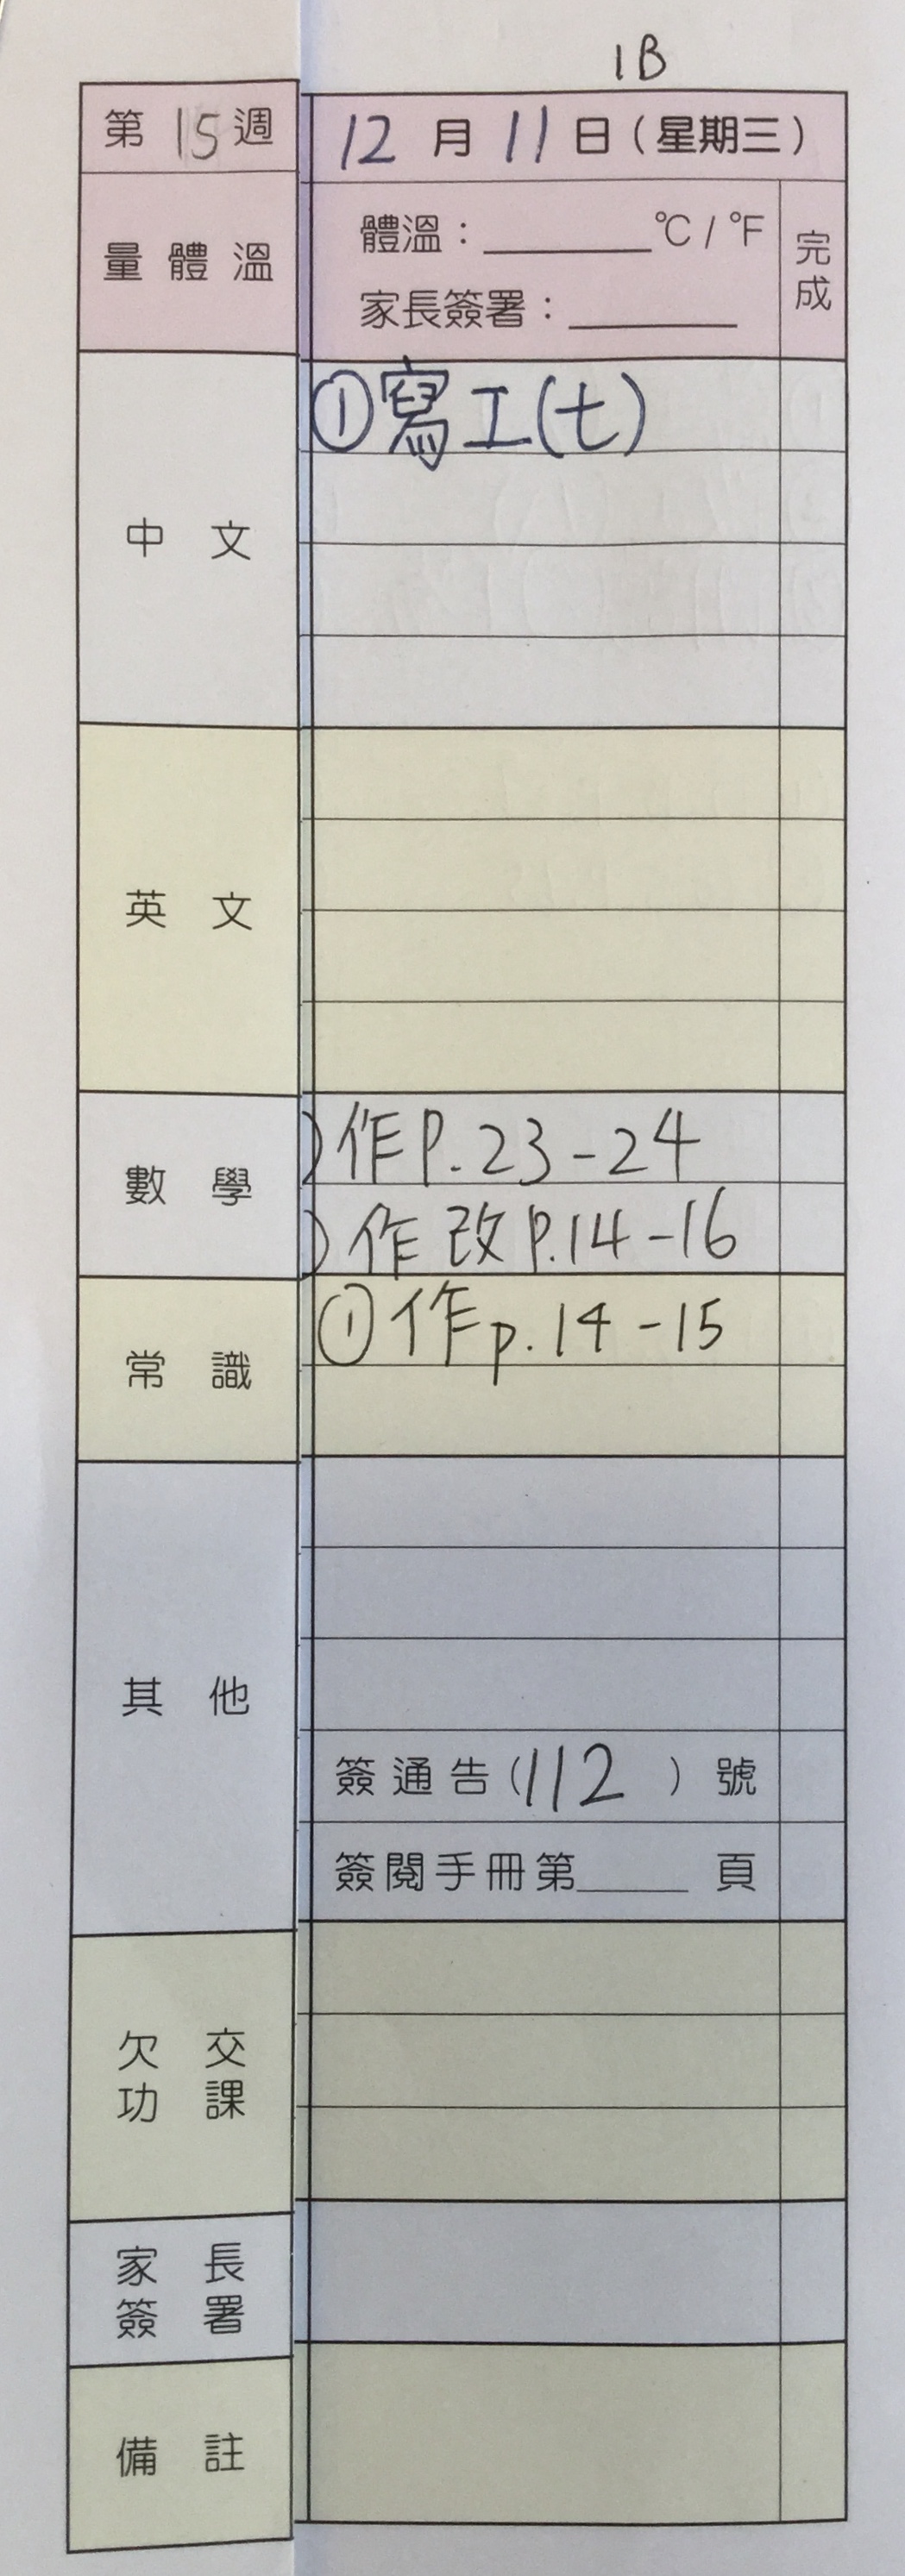 1B
第15週 12月11日(星期三)
量體溫
體溫:______℃/℉
家長簽署:______
完成
中文
①寫工(七)
英文
數學
)作P.23-24
)作改P.14-16
常識
①作p.14-15
其他
簽通告(112)號
簽閱手冊第____頁
欠交
功課
家長
簽署
備註